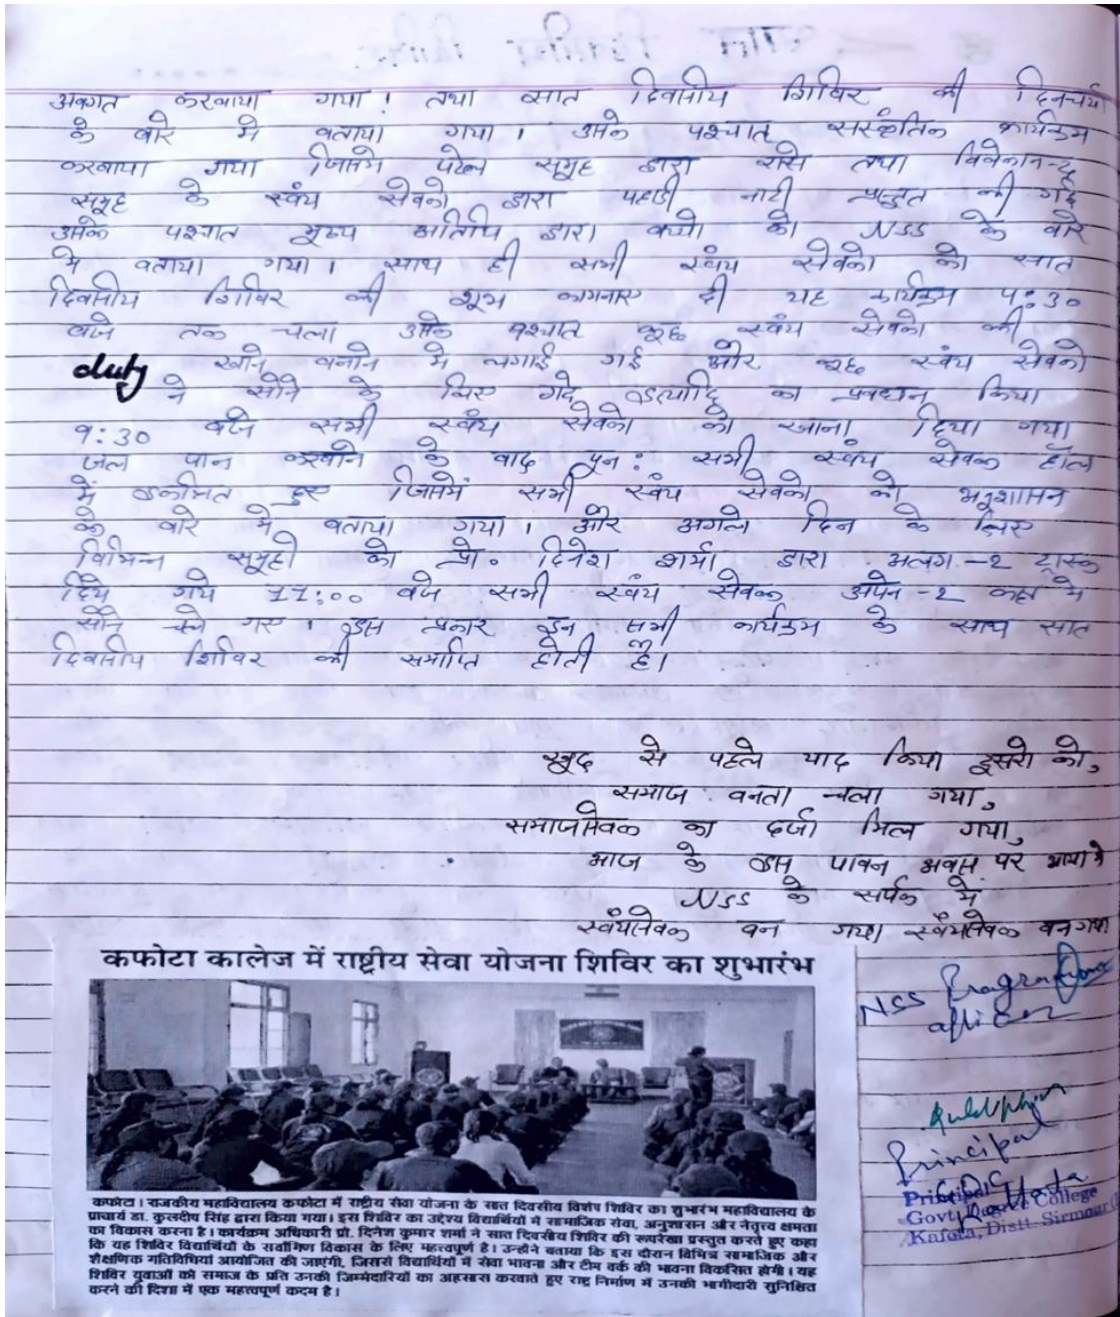 अवगत करवाया गया। तथा सात दिवसीय शिविर की दिनचर्या
के बारे में बताया गया। उसके पश्चात् सस्कृतिक कार्यक्रम
करवाया गया जिसमे पटेल समूह द्वारा रासे तथा विवेकानन्द
समूह के स्वंय सेवको द्वारा पहाडी नाटी प्रस्तुत की गई
उसके पश्चात मुख्य अतिथि द्वारा बच्चो को NSS के बारे
मे बताया गया। साथ ही सभी स्वंय सेवको को सात
दिवसीय शिविर की शुभ कामनाए दी यह कार्यक्रम 4:30
बजे तक चला उसके पश्चात कुछ स्वंय सेवको की
duty खाने बनाने मे लगाई गई और कुछ स्वंय सेवको
ने सोने के लिए गद्दे इत्यादि का प्रबधान किया
9:30 बजे सभी स्वंय सेवको को खाना दिया गया
जल पान करवाने के बाद पुन: सभी स्वंय सेवक हॉल
में एकत्रित हुए जिसमें सभी स्वंय सेवको को अनुशासन
के बारे मे बताया गया। और अगले दिन के लिए
विभिन्न समूहो को प्रो० दिनेश शर्मा द्वारा अलग-2 टास्क
दिये गये 11:00 बजे सभी स्वंय सेवक अपने-2 कक्ष मे
सोने चले गए। इस प्रकार इन सभी कार्यक्रम के साथ सात
दिवसीय शिविर की समाप्ति होती है।
खुद से पहले याद किया दूसरो को,
समाज बनता चला गया,
समाजसेवक का दर्जा मिल गया,
आज के इस पावन अवसर पर आया मे
NSS के सर्पक मे
स्वंयसेवक बन गया स्वंयसेवक बन गया
कफोटा कालेज में राष्ट्रीय सेवा योजना शिविर का शुभारंभ
NSS Programme
officer
Principal
Principal
Govt. Degree College
Kafota, Distt. Sirmour
कफोटा। राजकीय महाविद्यालय कफोटा में राष्ट्रीय सेवा योजना के सात दिवसीय विशेष शिविर का शुभारंभ महाविद्यालय के
प्राचार्य डा. कुलदीप सिंह द्वारा किया गया। इस शिविर का उद्देश्य विद्यार्थियों में सामाजिक सेवा, अनुशासन और नेतृत्व क्षमता
का विकास करना है। कार्यक्रम अधिकारी प्रो. दिनेश कुमार शर्मा ने सात दिवसीय शिविर की रूपरेखा प्रस्तुत करते हुए कहा
कि यह शिविर विद्यार्थियों के सर्वांगिण विकास के लिए महत्वपूर्ण है। उन्होंने बताया कि इस दौरान विभिन्न सामाजिक और
शैक्षणिक गतिविधियां आयोजित की जाएंगी, जिससे विद्यार्थियों में सेवा भावना और टीम वर्क की भावना विकसित होगी। यह
शिविर युवाओं को समाज के प्रति उनकी जिम्मेदारियों का अहसास करवाते हुए राष्ट्र निर्माण में उनकी भागीदारी सुनिश्चित
करने की दिशा में एक महत्वपूर्ण कदम है।